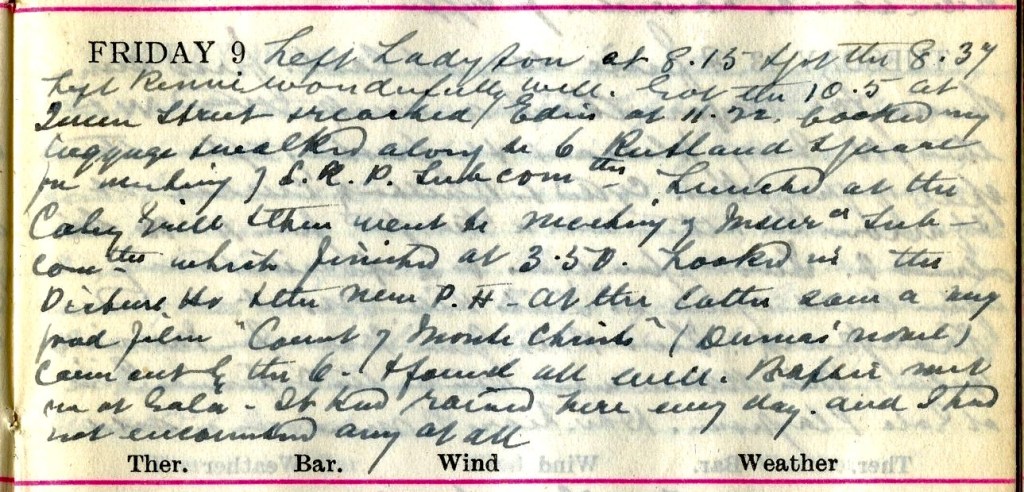 FRIDAY 9 Left Ladyton at 8.15 & got the 8.37
Left Rennie wonderfully well. Got the 10.5 at
Queen Street & reached Edin at 11.22. booked my
luggage & walked along to 6 Rutland Square
for meeting of S.R.P. Subcomttee. Lunched at the
Caley Grill & then went to meeting of Insurce Sub-
comttee which finished at 3.50. Looked in the
& the New P.H- At the latter saw a very
good film "Count of Monte Christo" (Dumas' novel)
Came out by the 6- & found all well. met
me at Gala- It had rained here every day. and I had
not encountered any at all
Ther. Bar. Wind Weather